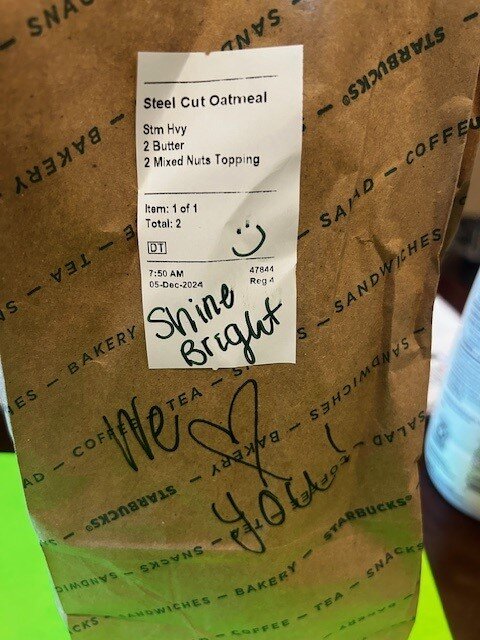 SNAC
STARBUCKS®
Steel Cut Oatmeal
Stm Hvy
2 Butter
2 Mixed Nuts Topping
BAKERY —
SALAD — COFFEE
Item: 1 of 1
Total: 2
DT
— TEA —
7:50 AM 47844
05-Dec-2024 Reg 4
Shine
Bright
— SANDWICHES
ES — BAKERY
AD — COFFEE — TEA —
SANDWICHES —
We ♡
you!
— BAKERY —
— SALAD
— STARBUCKS®
STARBUCKS®
SANDWICHES — SNACKS —
CKS — SANDWICHES — BAKERY — TEA — SNACKS
— COFFEE — TEA —
BAKERY